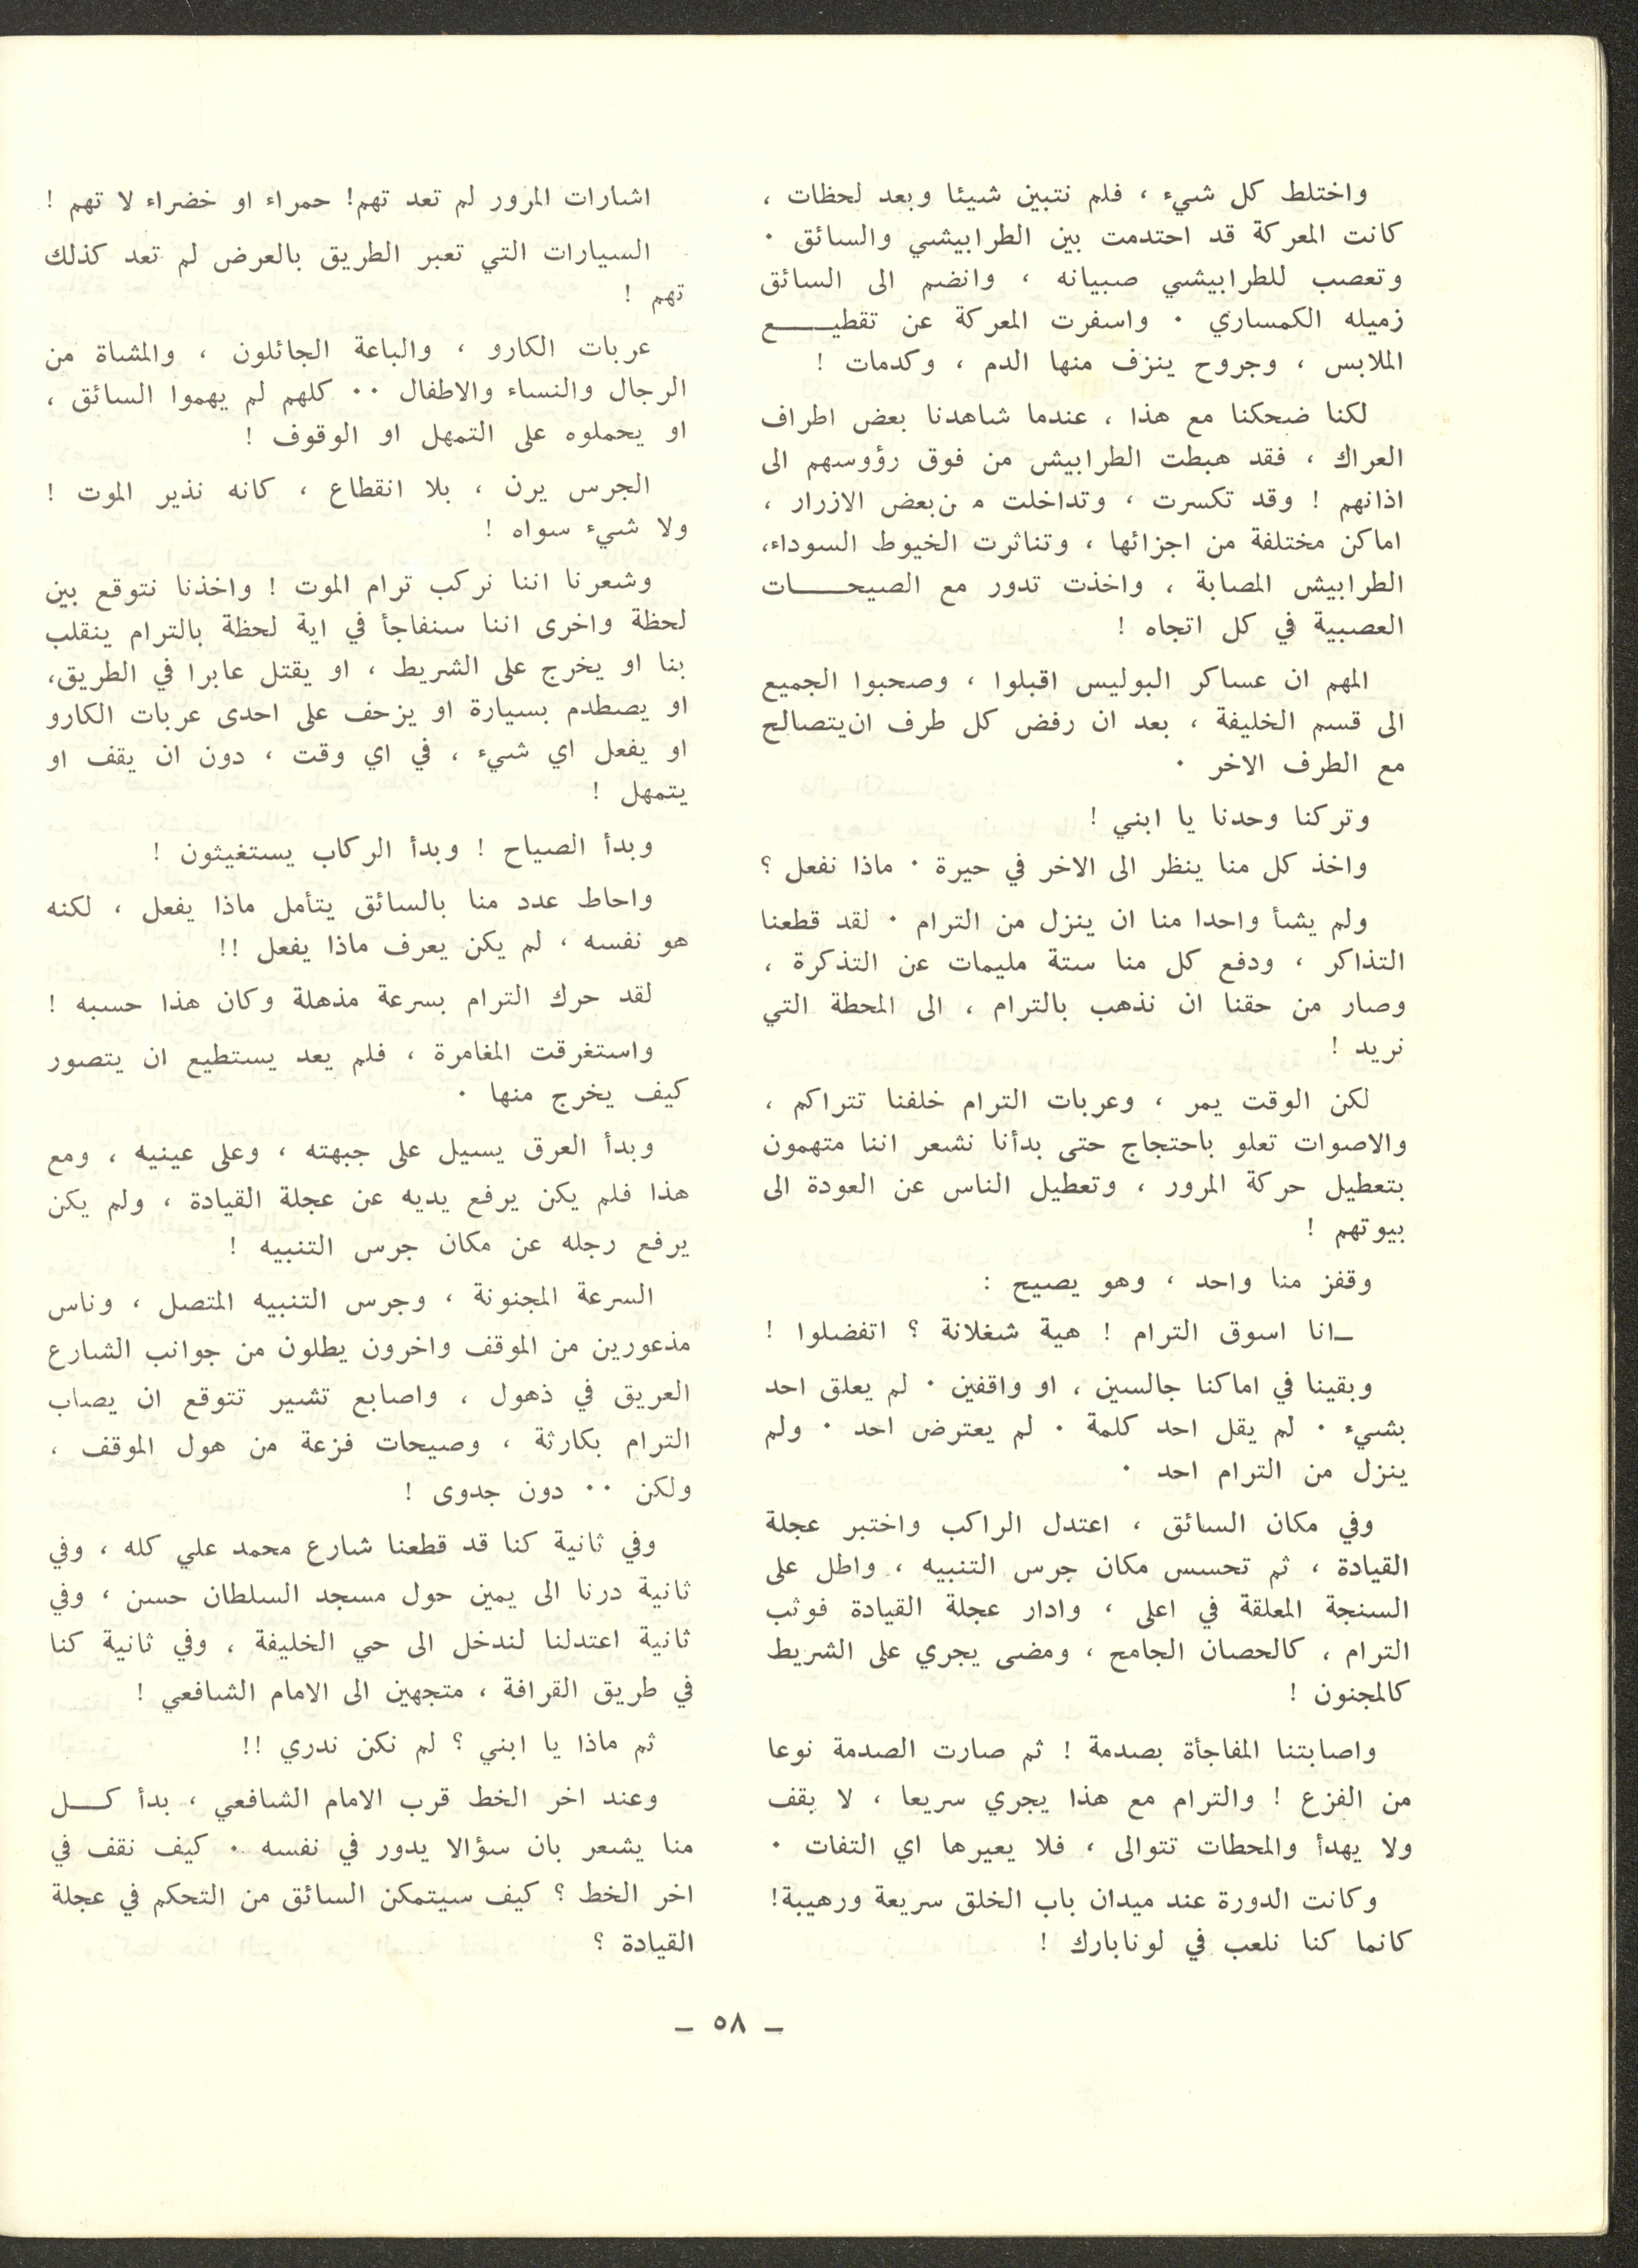 واختلط كل شيء ، فلم نتبين شيئا وبعد لحظات ،
كانت المعركة قد احتدمت بين الطرابيشي والسائق .
وتعصب للطرابيشي صبيانه ، وانضم الى السائق
زميله الكمساري . واسفرت المعركة عن تقطيـــــع
الملابس ، وجروح ينزف منها الدم ، وكدمات !
لكنا ضحكنا مع هذا ، عندما شاهدنا بعض اطراف
العراك ، فقد هبطت الطرابيش من فوق رؤوسهم الى
اذانهم ! وقد تكسرت ، وتداخلت م ن بعض الازرار ،
اماكن مختلفة من اجزائها ، وتناثرت الخيوط السوداء،
الطرابيش المصابة ، واخذت تدور مع الصيحـــــات
العصبية في كل اتجاه !
المهم ان عساكر البوليس اقبلوا ، وصحبوا الجميع
الى قسم الخليفة ، بعد ان رفض كل طرف ان يتصالح
مع الطرف الاخر .
وتركنا وحدنا يا ابني !
واخذ كل منا ينظر الى الاخر في حيرة . ماذا نفعل ؟
ولم يشأ واحدا منا ان ينزل من الترام . لقد قطعنا
التذاكر ، ودفع كل منا ستة مليمات عن التذكرة ،
وصار من حقنا ان نذهب بالترام ، الى المحطة التي
نريد !
لكن الوقت يمر ، وعربات الترام خلفنا تتراكم ،
والاصوات تعلو باحتجاج حتى بدأنا نشعر اننا متهمون
بتعطيل حركة المرور ، وتعطيل الناس عن العودة الى
بيوتهم !
وقفز منا واحد ، وهو يصيح :
ـ انا اسوق الترام ! هية شغلانة ؟ اتفضلوا !
وبقينا في اماكنا جالسين ، او واقفين . لم يعلق احد
بشيء . لم يقل احد كلمة . لم يعترض احد . ولم
ينزل من الترام احد .
وفي مكان السائق ، اعتدل الراكب واختبر عجلة
القيادة ، ثم تحسس مكان جرس التنبيه ، واطل على
السنجة المعلقة في اعلى ، وادار عجلة القيادة فوثب
الترام ، كالحصان الجامح ، ومضى يجري على الشريط
كالمجنون !
واصابتنا المفاجأة بصدمة ! ثم صارت الصدمة نوعا
من الفزع ! والترام مع هذا يجري سريعا ، لا يقف
ولا يهدأ والمحطات تتوالى ، فلا يعيرها اي التفات .
وكانت الدورة عند ميدان باب الخلق سريعة ورهيبة!
كانما كنا نلعب في لونابارك !
اشارات المرور لم تعد تهم! حمراء او خضراء لا تهم !
السيارات التي تعبر الطريق بالعرض لم تعد كذلك
تهم !
عربات الكارو ، والباعة الجائلون ، والمشاة من
الرجال والنساء والاطفال .. كلهم لم يهموا السائق ،
او يحملوه على التمهل او الوقوف !
الجرس يرن ، بلا انقطاع ، كانه نذير الموت !
ولا شيء سواه !
وشعرنا اننا نركب ترام الموت ! واخذنا نتوقع بين
لحظة واخرى اننا سنفاجأ في اية لحظة بالترام ينقلب
بنا او يخرج على الشريط ، او يقتل عابرا في الطريق،
او يصطدم بسيارة او يزحف على احدى عربات الكارو
او يفعل اي شيء ، في اي وقت ، دون ان يقف او
يتمهل !
وبدأ الصياح ! وبدأ الركاب يستغيثون !
واحاط عدد منا بالسائق يتأمل ماذا يفعل ، لكنه
هو نفسه ، لم يكن يعرف ماذا يفعل !!
لقد حرك الترام بسرعة مذهلة وكان هذا حسبه !
واستغرقت المغامرة ، فلم يعد يستطيع ان يتصور
كيف يخرج منها .
وبدأ العرق يسيل على جبهته ، وعلى عينيه ، ومع
هذا فلم يكن يرفع يديه عن عجلة القيادة ، ولم يكن
يرفع رجله عن مكان جرس التنبيه !
السرعة المجنونة ، وجرس التنبيه المتصل ، وناس
مذعورين من الموقف واخرون يطلون من جوانب الشارع
العريق في ذهول ، واصابع تشير تتوقع ان يصاب
الترام بكارثة ، وصيحات فزعة من هول الموقف ،
ولكن .. دون جدوى !
وفي ثانية كنا قد قطعنا شارع محمد علي كله ، وفي
ثانية درنا الى يمين حول مسجد السلطان حسن ، وفي
ثانية اعتدلنا لندخل الى حي الخليفة ، وفي ثانية كنا
في طريق القرافة ، متجهين الى الامام الشافعي !
ثم ماذا يا ابني ؟ لم نكن ندري !!
وعند اخر الخط قرب الامام الشافعي ، بدأ كـــل
منا يشعر بان سؤالا يدور في نفسه . كيف نقف في
اخر الخط ؟ كيف سيتمكن السائق من التحكم في عجلة
القيادة ؟
ـ ٥٨ ـ